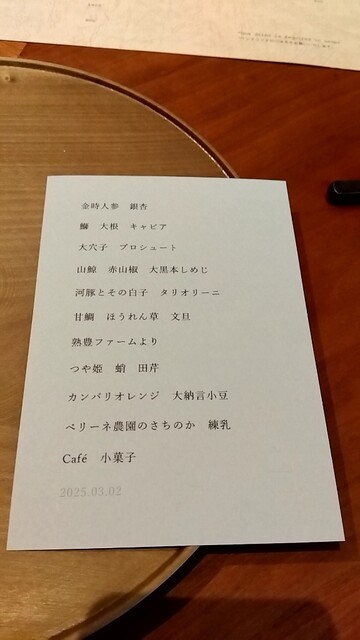 金時人参　銀杏
鰤　大根　キャビア
大穴子　プロシュート
山鯨　赤山椒　大黒本しめじ
河豚とその白子　タリオリーニ
甘鯛　ほうれん草　文旦
熟豊ファームより
つや姫　蛸　田芹
カンパリオレンジ　大納言小豆
ベリーネ農園のさちのか　練乳
Café　小菓子
2025.03.02